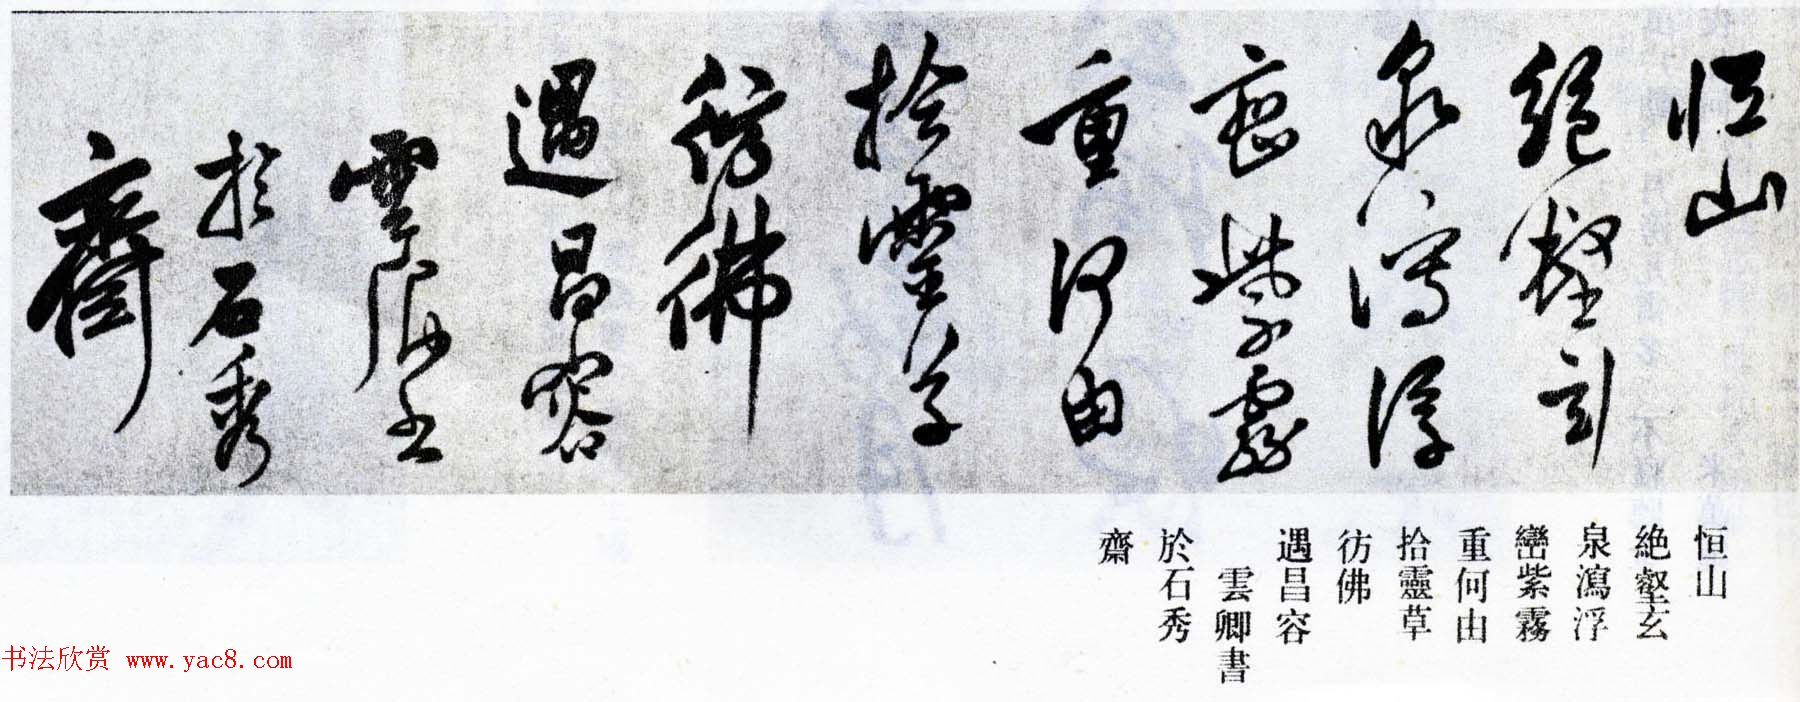 恒山
絶壑玄
泉瀉浮
巒紫霧
重何由
拾靈草
彷佛
遇昌容
雲卿書
於石秀
齋
恒山
絶壑玄
泉瀉浮
巒紫霧
重何由
拾靈草
彷佛
遇昌容
雲卿書
於石秀
齋
书法欣赏 www.yac8.com